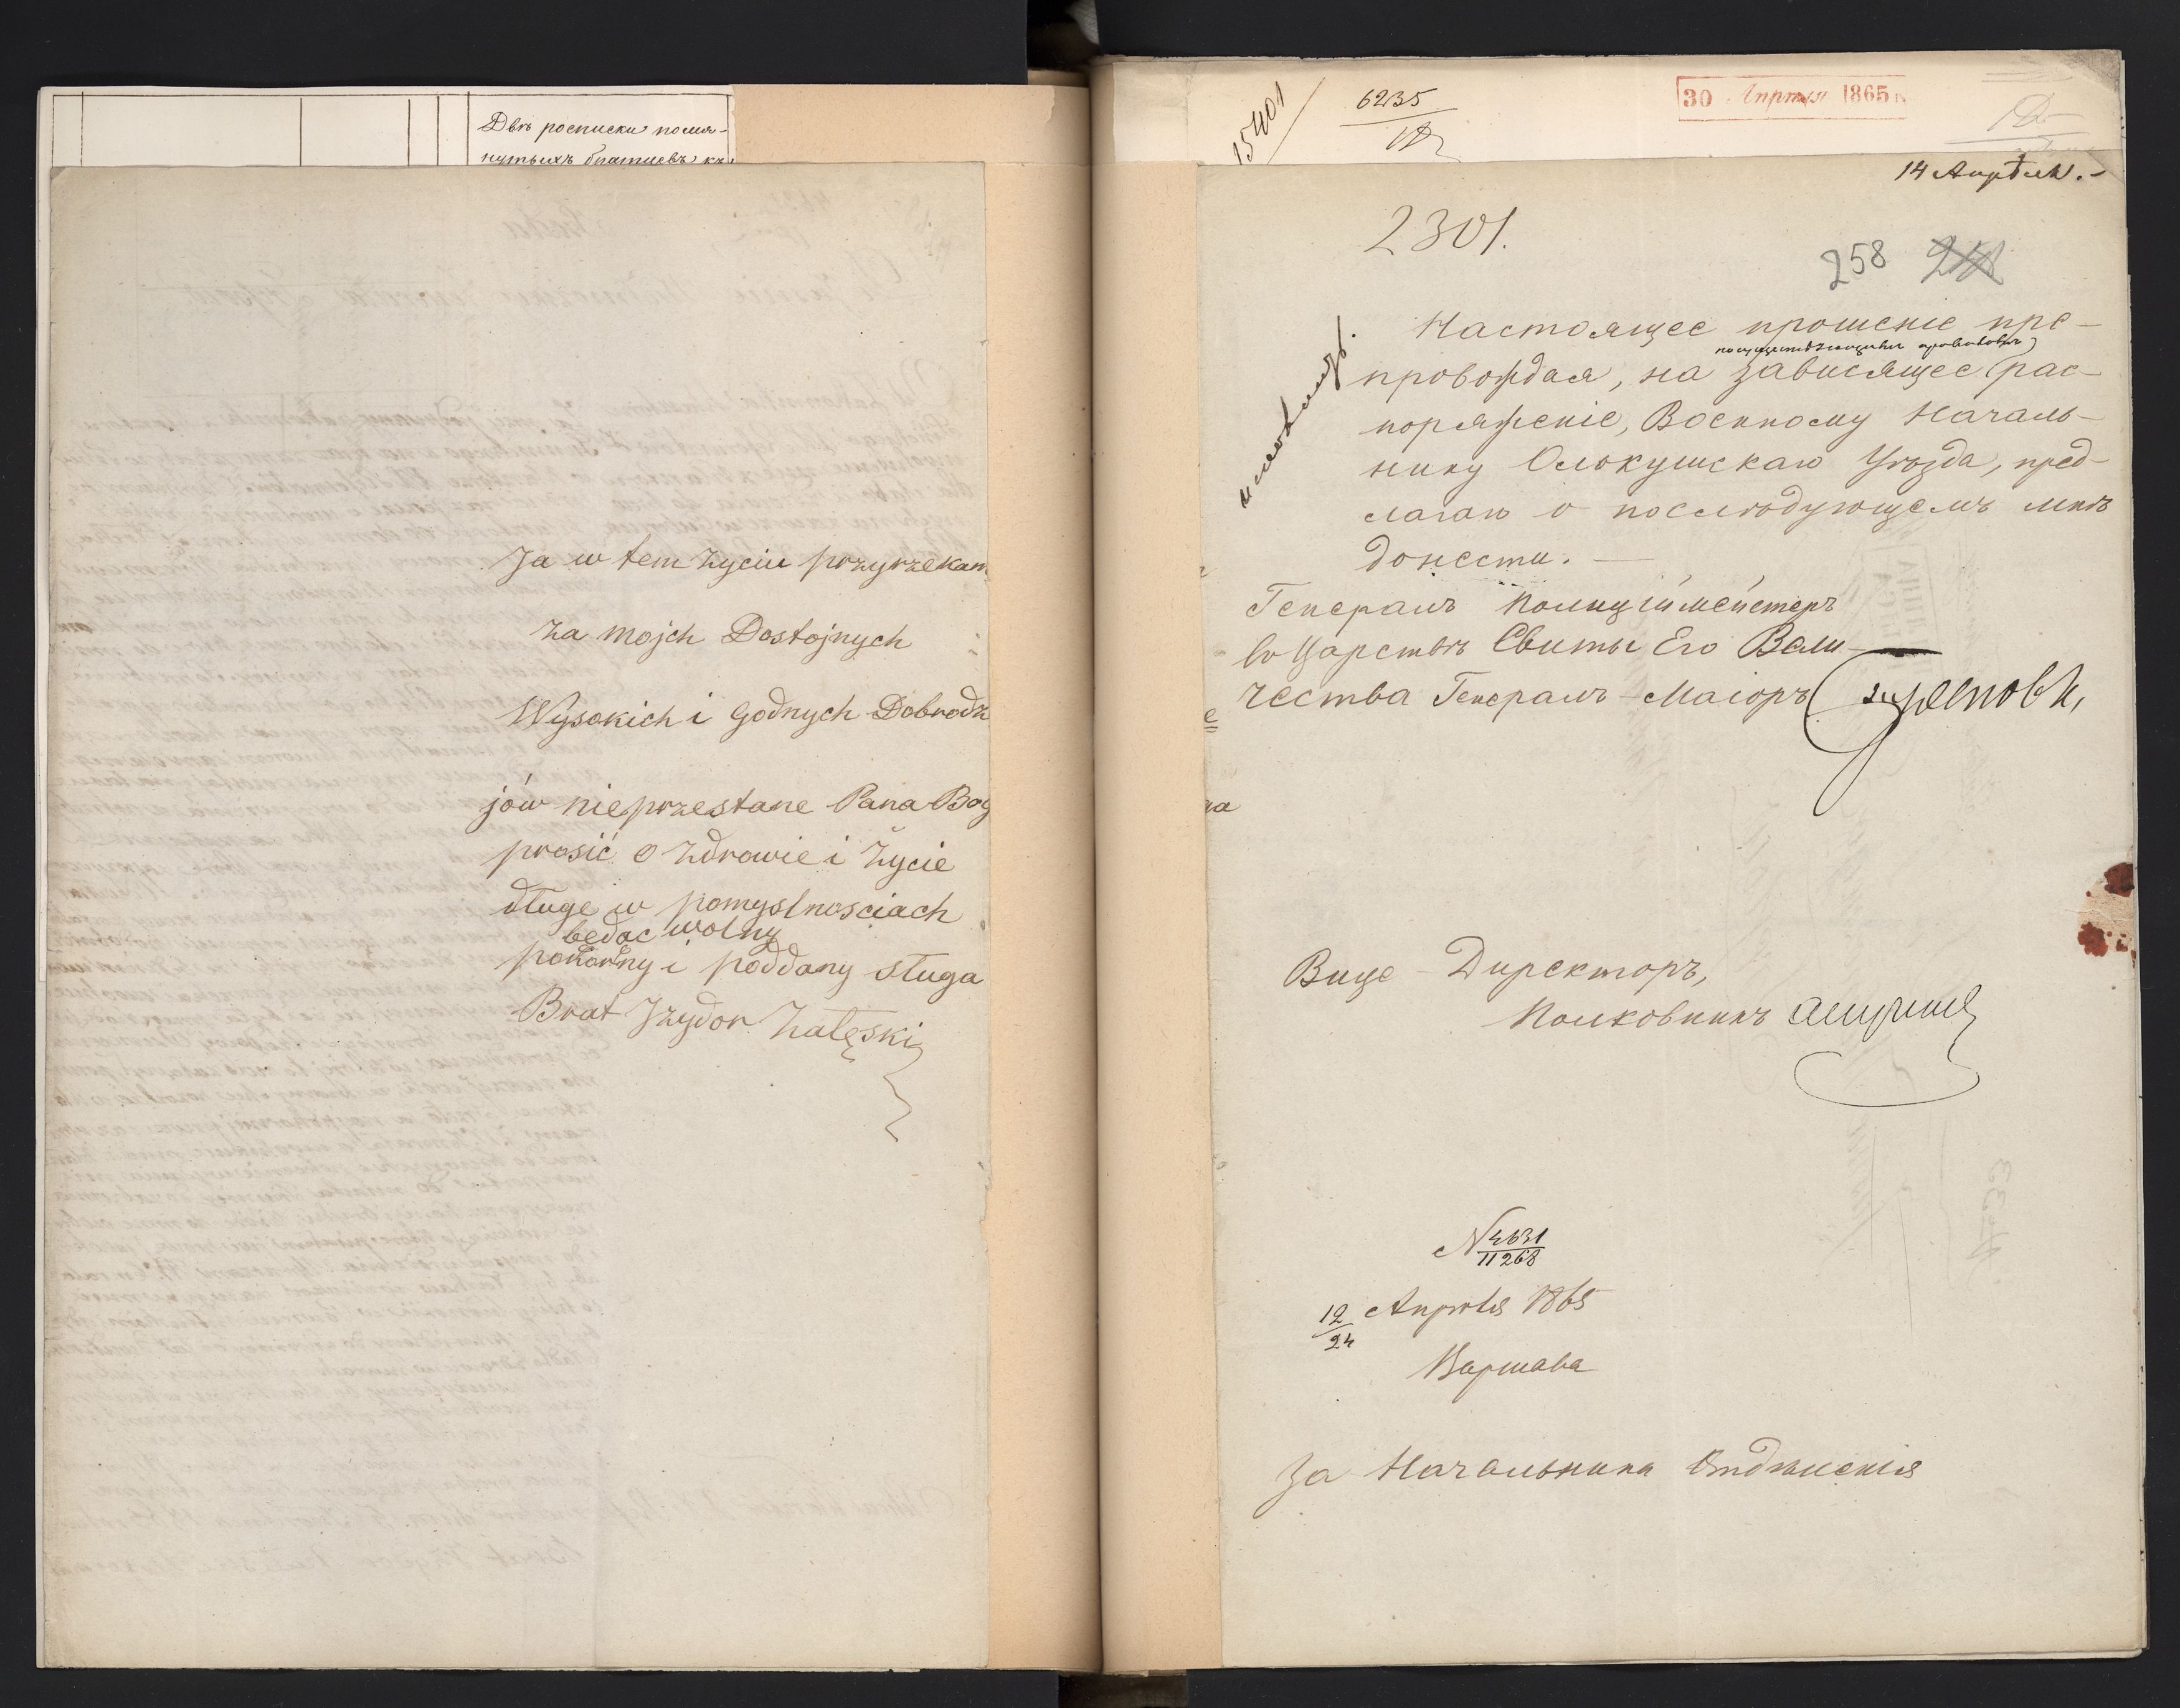 Двѣ росписки помя-
нутыхъ
Ja w tem życiu przyrzekam
za mojch Dostojnych
Wysokich i Godnych Dobrodz
jów nieprzestane Pana Bog
prosić o zdrowie i życie
długe w pomyslnosciach
bedac wolny
pokorny i poddany sługa
Brat Jzydor Zalęski
15401
6235
30 Апрѣля 1865
14 Апрѣля.
2301.
258
Настоящее прошеніе пре-
провождая, на зависящее рас-
поряженіе, Военному Началь-
нику Олькушскаго Уѣзда, пред-
лагаю о послѣдующемъ мнѣ
донести.
Генералъ Полицiймейстеръ
въ Царствѣ Свиты Его Вели-
чества Генералъ-Маіоръ
Вице-Директоръ,
Полковникъ
№ 4631
11268
12 Апрѣля 1865
24
Варшава
За Начальника Отдѣленія